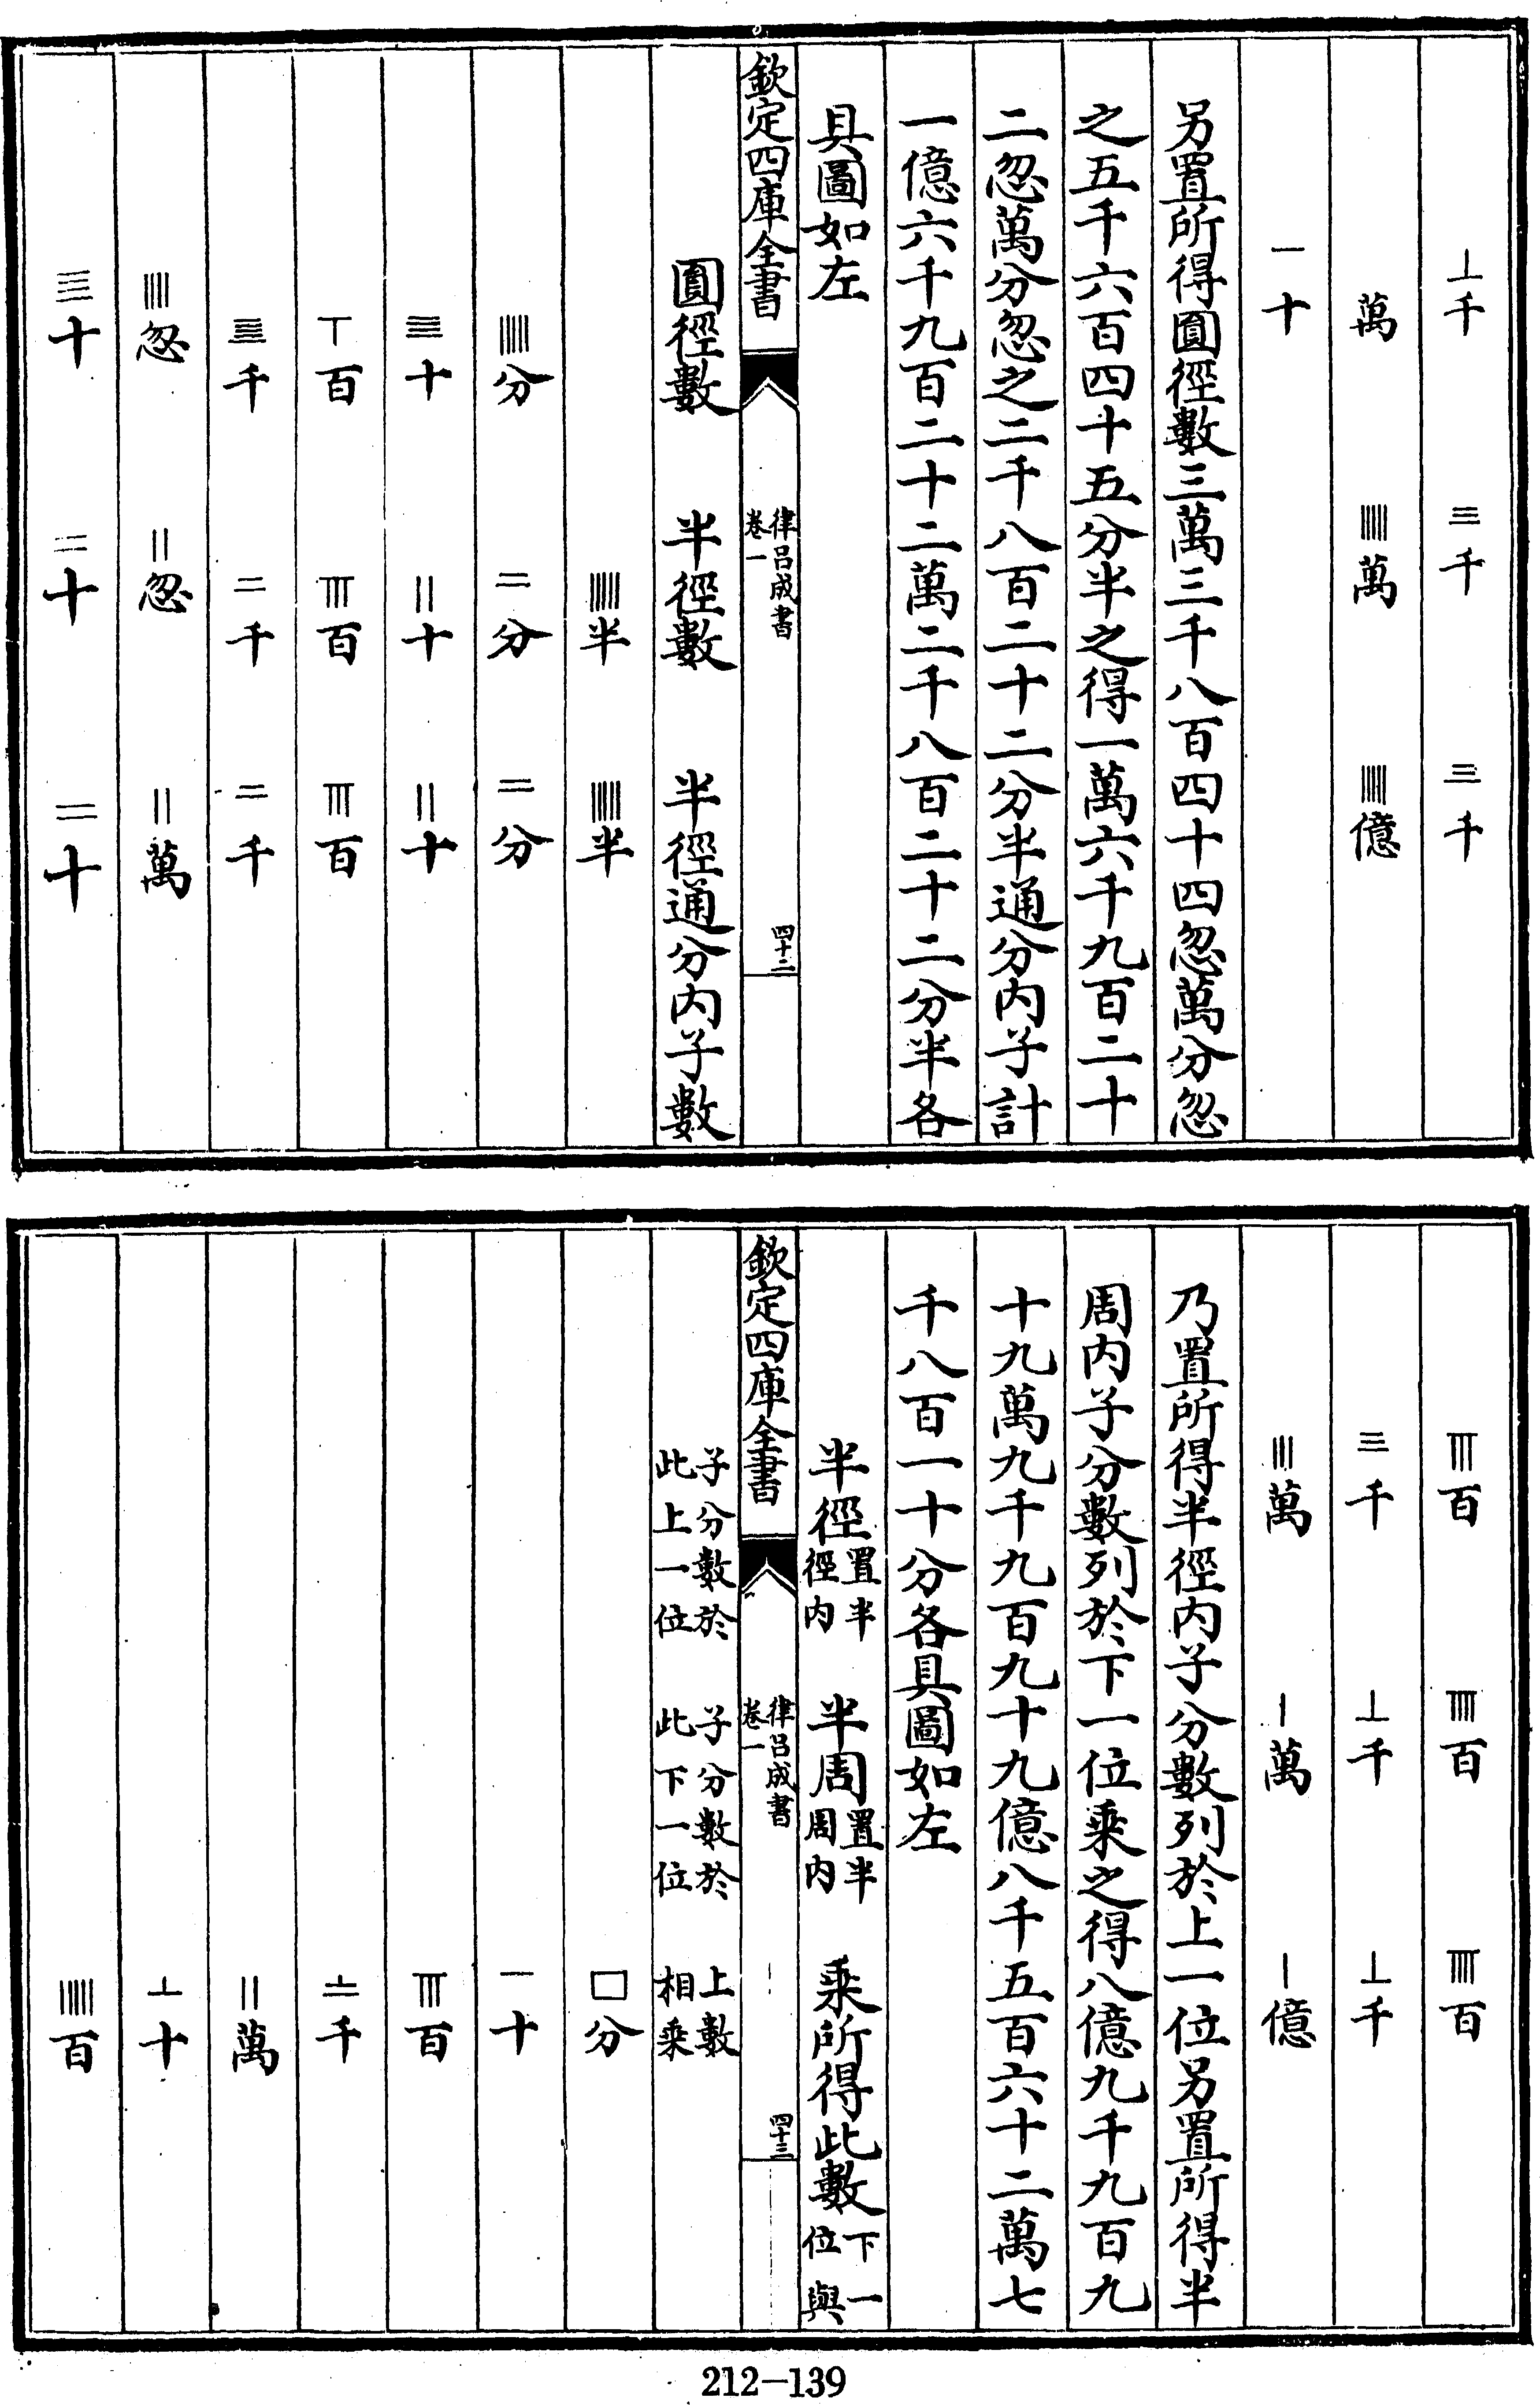 𝍮千　𝍫千　𝍫千
萬　𝍤萬　𝍤億
一十
另置所得圓徑數三萬三千八百四十四忽萬分忽
之五千六百四十五分半之得一萬六千九百二十
二忽萬分忽之二千八百二十二分半通分内子計
一億六千九百二十二萬二千八百二十二分半各
具圖如左
欽定四庫全書　律吕成書卷一　四十二
圓徑數　半徑數　半徑通分内子數
𝍤半　𝍤半
𝍤分　二分　二分
𝍬十　𝍡十　𝍡十
𝍥百　𝍧百　𝍧百
𝍭千　二千　二千
𝍣忽　𝍡忽　𝍡萬
𝍬十　二十　二十
𝍧百　𝍨百　𝍨百
三千　𝍮千　𝍮千
𝍢萬　𝍠萬　𝍠億
乃置所得半徑内子分數列於上一位另置所得半
周内子分數列於下一位乘之得八億九千九百九
十九萬九千九百九十九億八千五百六十二萬七
千八百一十分各具圖如左
半徑置半徑内　半周置半周内　乘所得此數下一位與
欽定四庫全書　律吕成書卷一　四十三
子分數於此上一位　子分數於此下一位　上數相乘
囗分
一十
𝍧百
𝍯千
𝍡萬
𝍮十
𝍤百
212—139